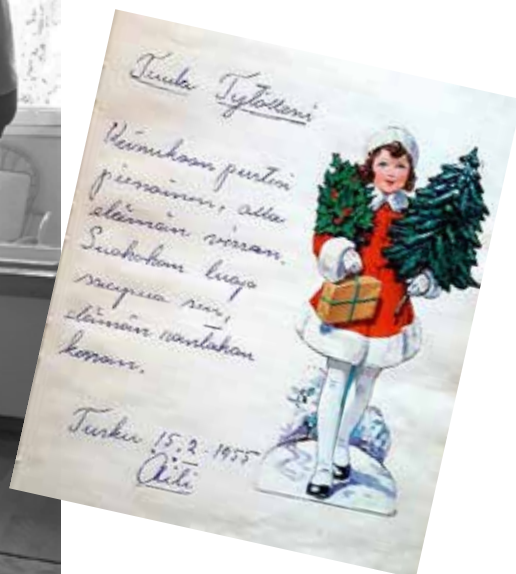 Tuula Tyttöseni
Keinukoon purtesi
pienoinen, alla
elämän virran.
Suokohon luoja
suojaa sen,
elämän rantahan
kerran.
Turku 15.2-1955
Äiti